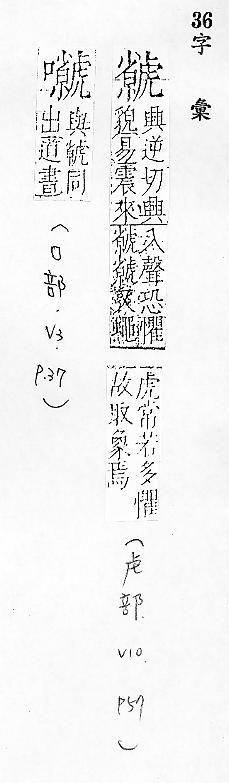 36 字彙
虩
興逆切興入聲恐懼
貌易震來虩虩蠅
虎常若多懼
故取象焉
(虍部. V10. P57)
與虩同
出道書
(口部. V3. P.37)